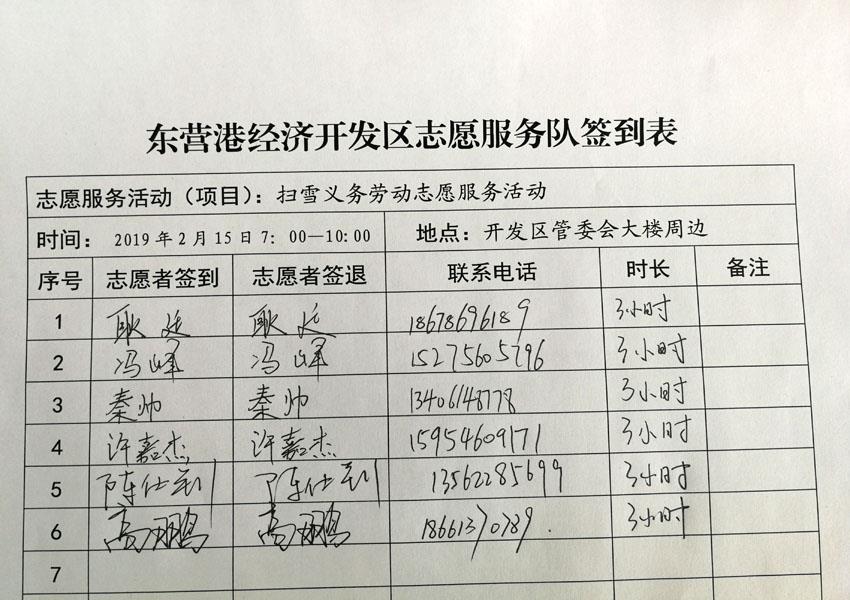 东营港经济开发区志愿服务队签到表
志愿服务活动（项目）：扫雪义务劳动志愿服务活动
时间： 2019年2月15日7：00—10:00 地点：开发区管委会大楼周边
序号 志愿者签到 志愿者签退 联系电话 时长 备注
1 耿廷 耿廷 18678696189 3小时
2 冯峰 冯峰 15275605296 3小时
3 秦帅 秦帅 13406148778 3小时
4 许嘉杰 许嘉杰 15954609171 3小时
5 陈仕 陈仕 13562285699 3小时
6 高鹏 高鹏 18661370789 3小时
7